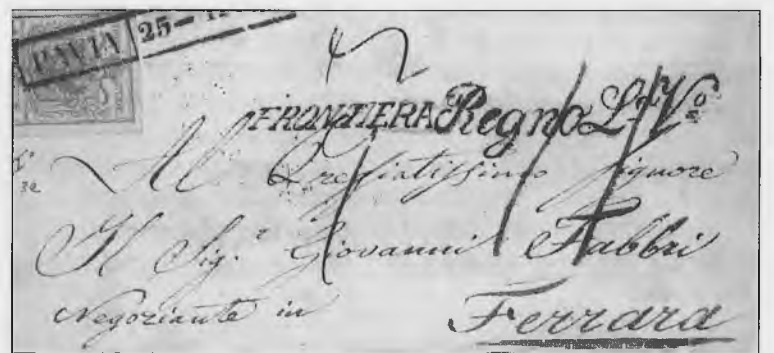 PAVIA 25
FRONTIERA Regno L.º Vº
Al Pregiatissimo Signore
Il Sig.e Giovanni Fabbri
Negoziante in Ferrara